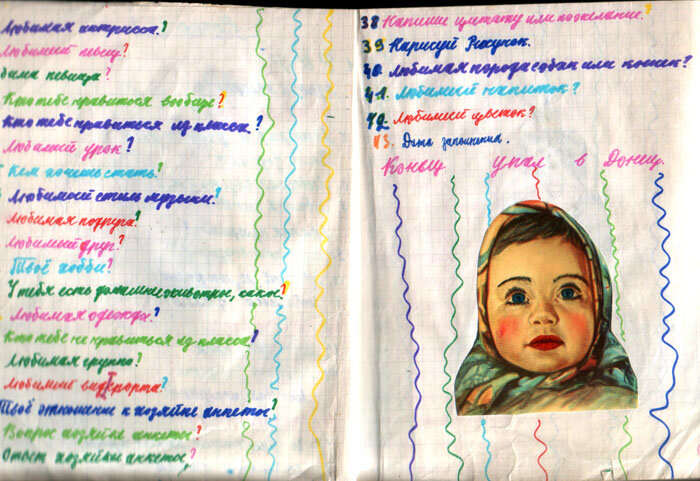 Любимая актриса?
Любимый певец?
бимая певица?
Кто тебе нравиться вообще?
Кто тебе нравиться из класса?
Любимый урок?
Кем хочешь стать?
Любимый стиль музыки?
Любимая подруга?
Любимый друг?
Твоё хобби?
У тебя есть домашние животные, какое?
Любимая одежда?
Кто тебе не нравиться из класса?
Любимая группа?
Любимый вид спорта?
Твоё отношение к хозяйке анкеты?
Вопрос хозяйке анкеты?
Ответ хозяйке анкеты?
38 Напиши цитату или пожелание?
39 Нарисуй Рисунок.
40. Любимая порода собак или кошек?
41. Любимый напиток?
42. Любимый цветок?
43. Дата заполнения.
Конец упал в Донец.